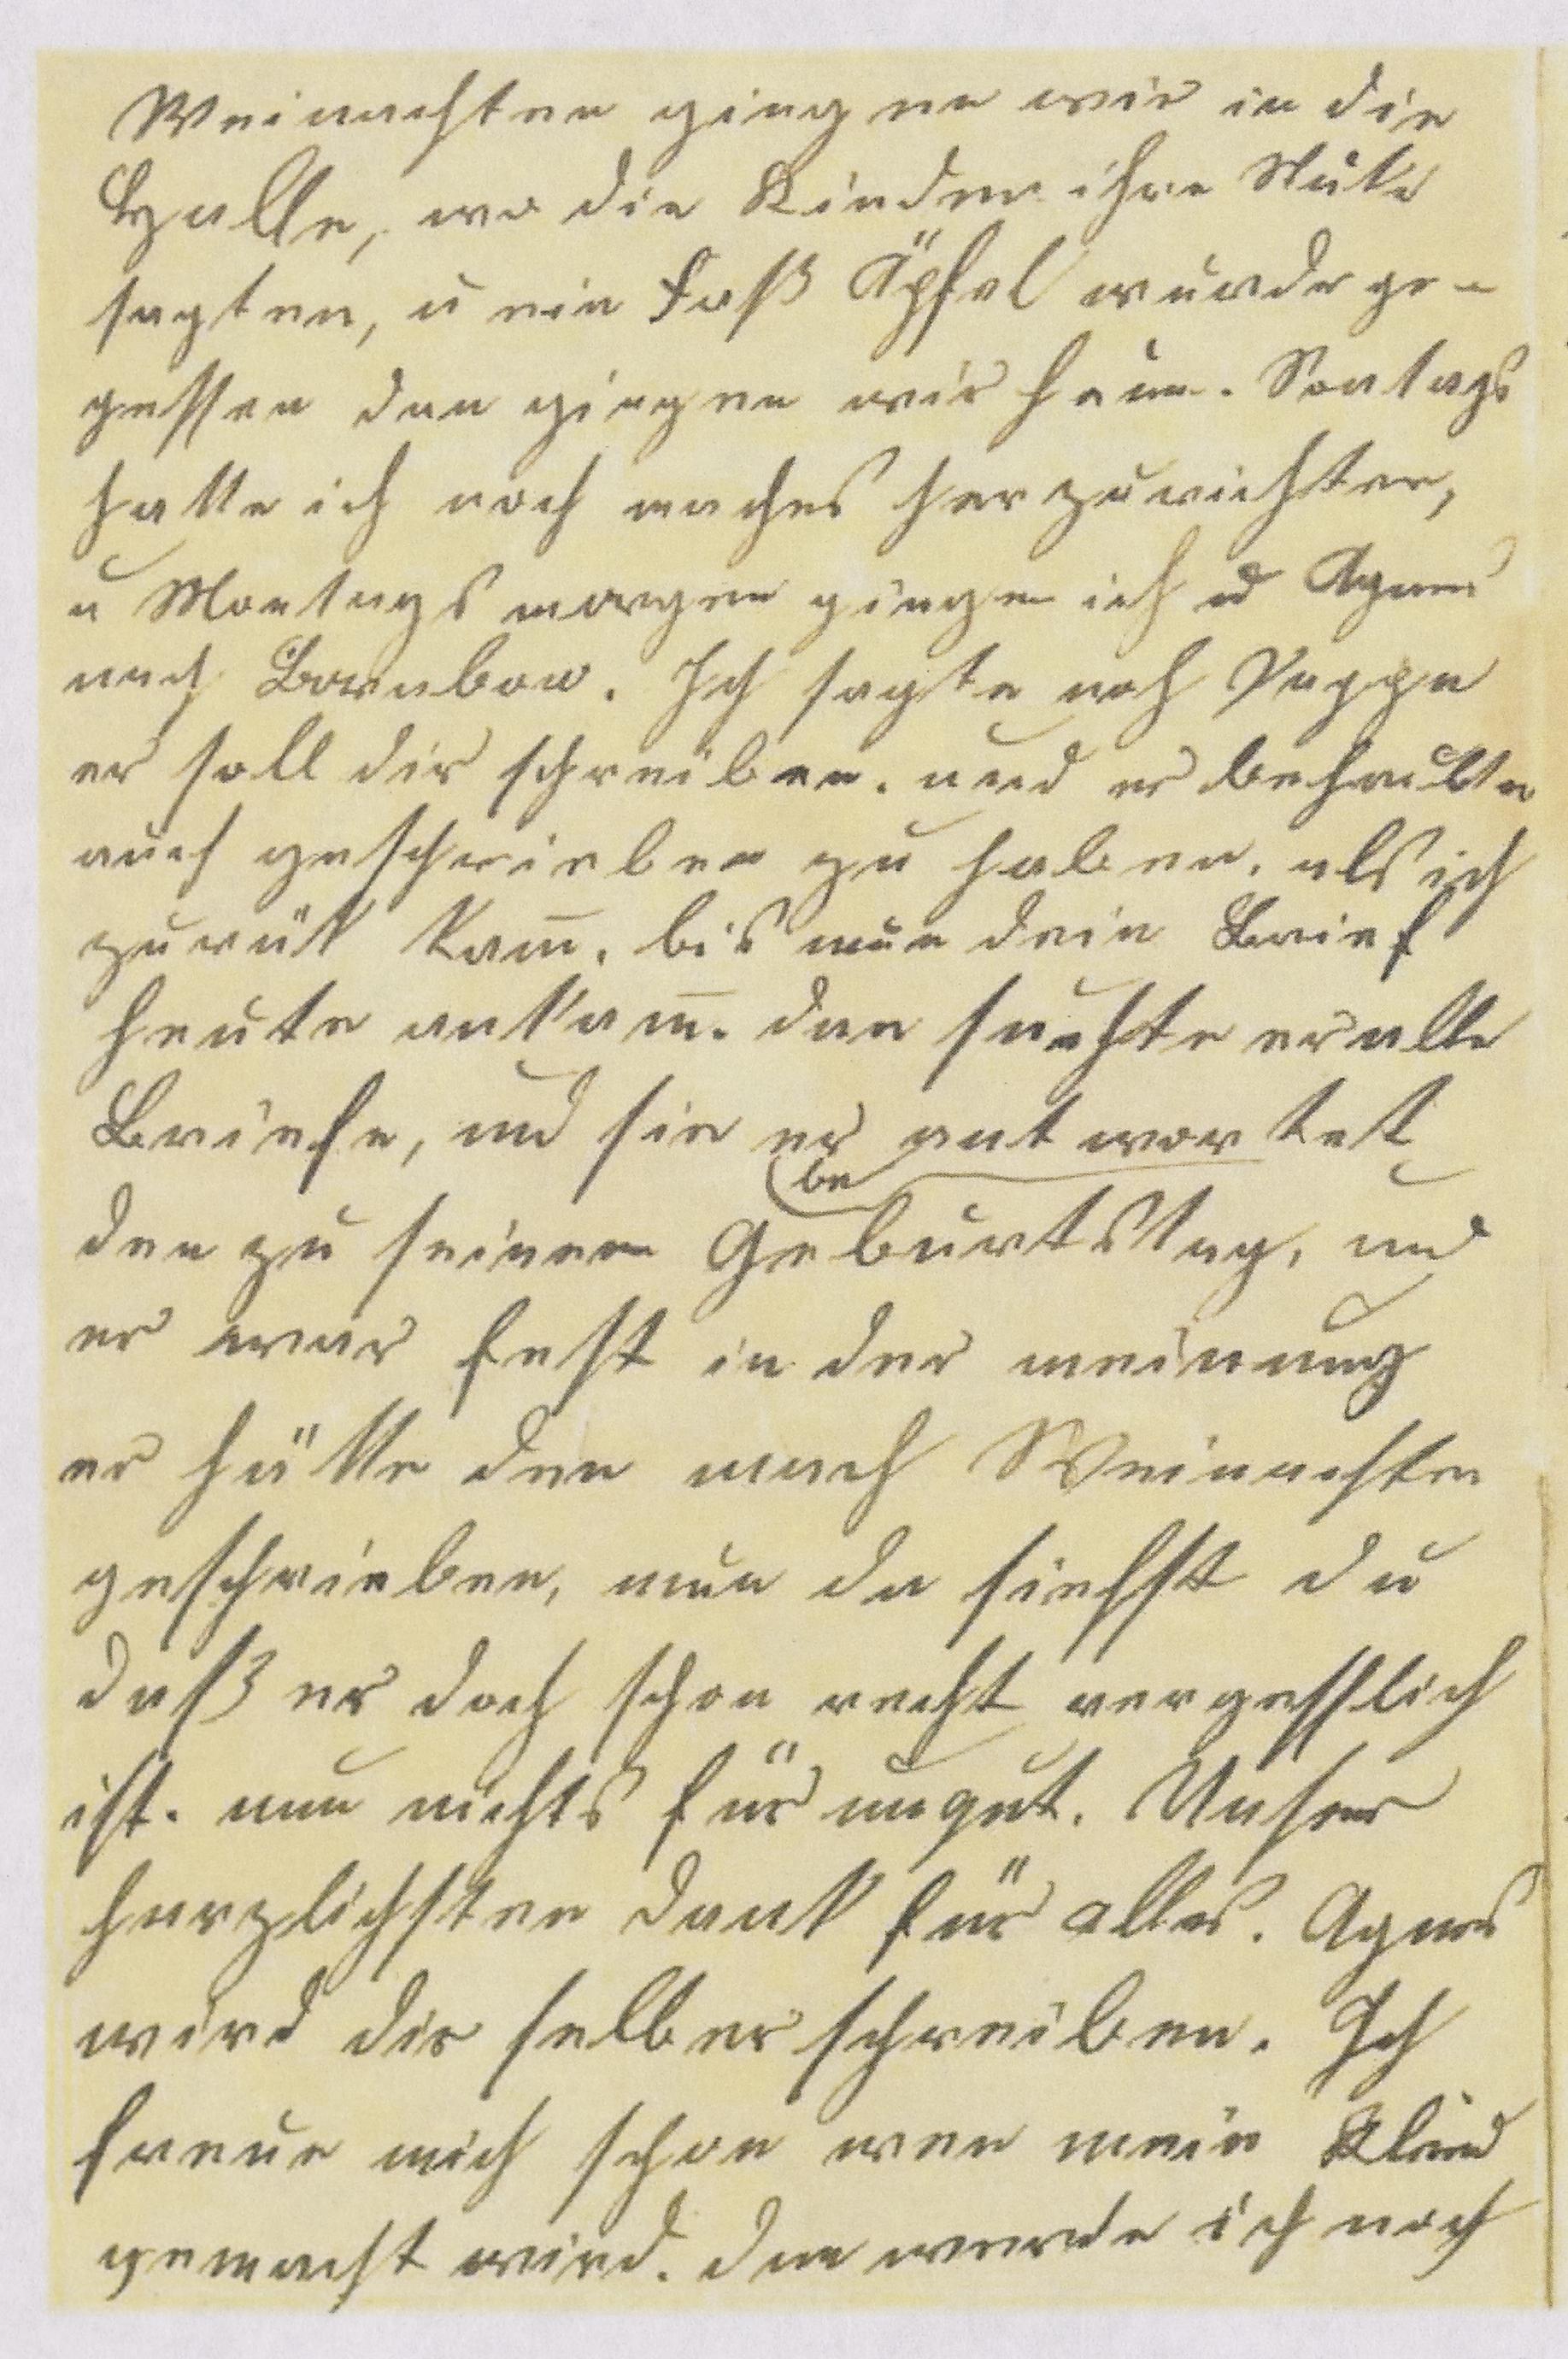 Weinachten gingen wir in die
Halle, wo die Kinder ihre Stüke
sagten, u ein Faß Äpfel wurde ge-
gessen dan gingen wir heim. Sontags
hatte ich noch maches herzurichten,
u Montags morgen gingen ich u Agnes
nach. Ich sagte noch Pappa
er soll dir schreiben. und er behaubte
auch geschrieben zu haben. als ich
zurük kam̅, bis nun dein Brief
heute ankam̅. dan suchte er alle
Briefe, und sie er antwortet
be
den zu seinem Geburtstag, und
er war fest in der meinung
er hätte den nach Weinachten
geschrieben, nun da siehst du
daß er doch schon recht vergesslich
ist. nun nichts für ungut. Unser
herzlichsten Dank für alles. Agnes
wird dir selber schreiben. Ich
freue mich schon wen mein Kleid
gemacht wird. dan werde ich noch